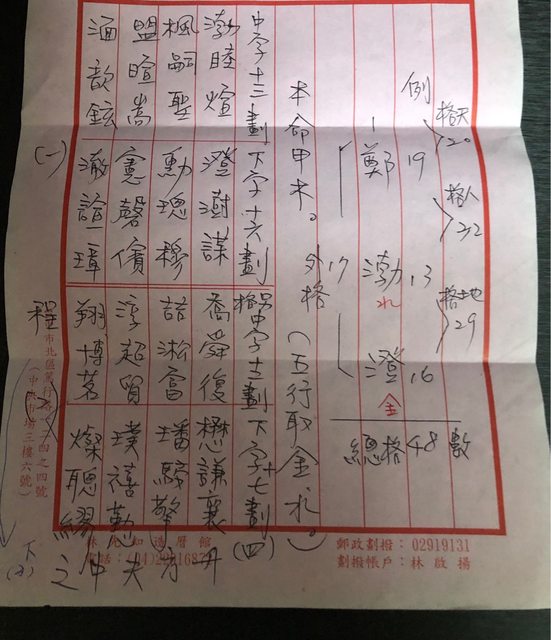 格天 20
格人 32
格地 29
例
1 鄭 19
渤 13 水
澄 16 金
外格 17
總格 48 數
本命甲木。(五行取金水。)
中字十三劃 下字十六劃
渤睦煊 澄澍謀
楓嗣聖 勳瑰穆
盟暄嵩 憲磬儐
湎歆鉉 澈諠璋
(一)
另格中字十二劃 下字十七劃 (四)
喬舜復 懋謙襄
喆淞富 璠
淳超貿 璞禧懃
翔博茗 燦聰繆
夫
中
之
程
下
市北區
(中央市場三樓六號)
造曆館
電話:(04)
郵政劃撥:02919131
劃撥帳戶:林啟揚